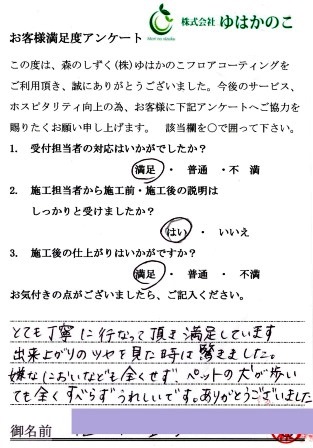 株式会社 ゆはかのこ
お客様満足度アンケート
この度は、森のしずく(株)ゆはかのこフロアコーティングを
ご利用頂き、誠にありがとうございました。今後のサービス、
ホスピタリティ向上の為、お客様に下記アンケートへご協力を
賜りたくお願い申し上げます。 該当欄を○で囲って下さい。
1. 受付担当者の対応はいかがでしたか?
満足 ・ 普通 ・不 満
2. 施工担当者から施工前・施工後の説明は
しっかりと受けましたか?
はい ・ いいえ
3. 施工後の仕上がりはいかがですか?
満足 ・ 普通 ・ 不満
お気付きの点がございましたら、ご記入ください。
とても丁寧に行なって頂き満足しています
出来上がりのツヤを見た時は驚きました。
嫌なにおいなども全くせず、ペットの犬が歩い
ても全くすべらずうれしいです。ありがとうございました
御名前